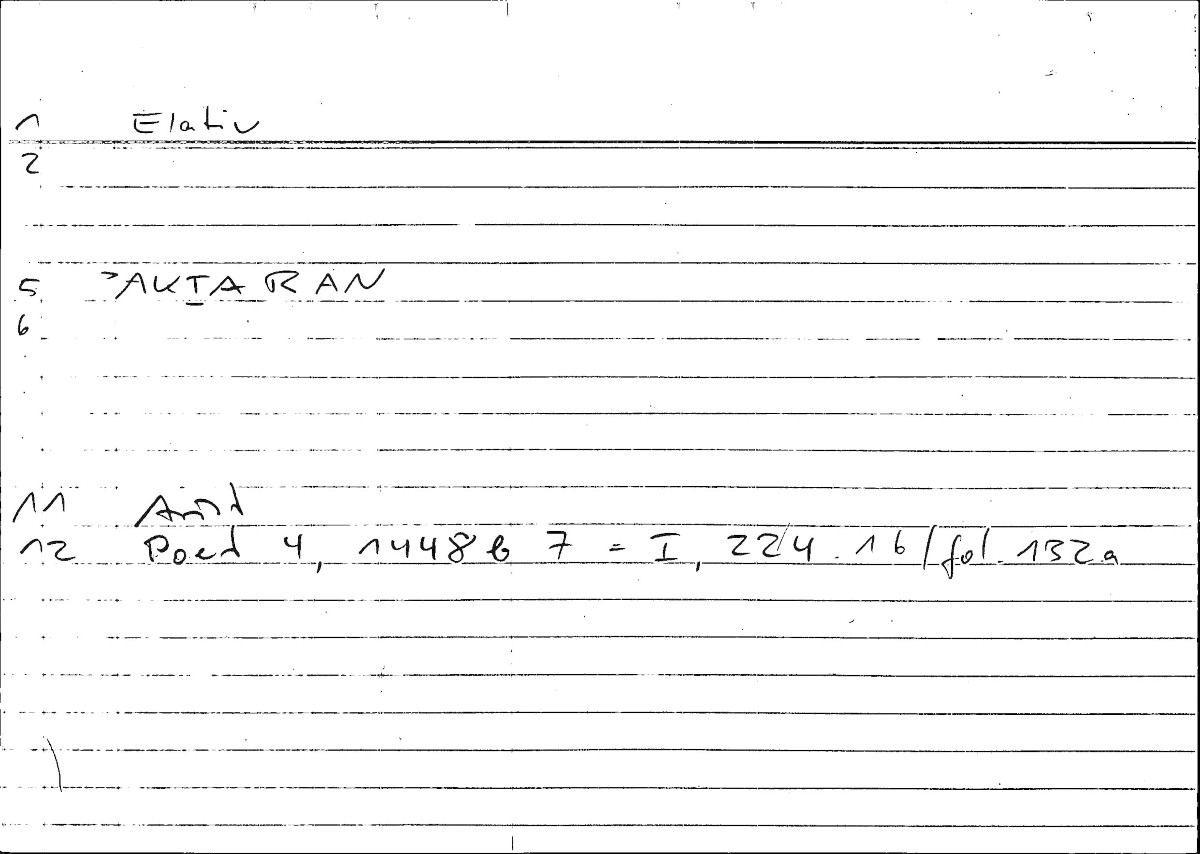 1 Elativ
2
5 ʾAKṮARAN
6
11 Arist
12 Poet 4, 1448b 7 = I, 224.16/fol. 132a